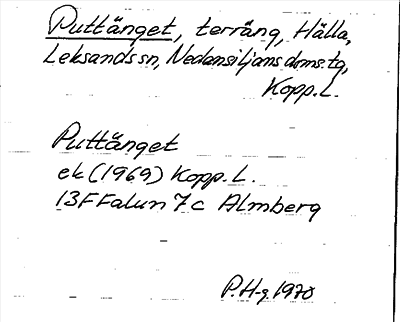 Puttänget, terräng, Hälla,
Leksands sn, Nedansiljans doms. tg,
Kopp. L.
Puttänget
ek (1969) Kopp. L.
13F Falun 7c Almberg
P.H-g. 1970